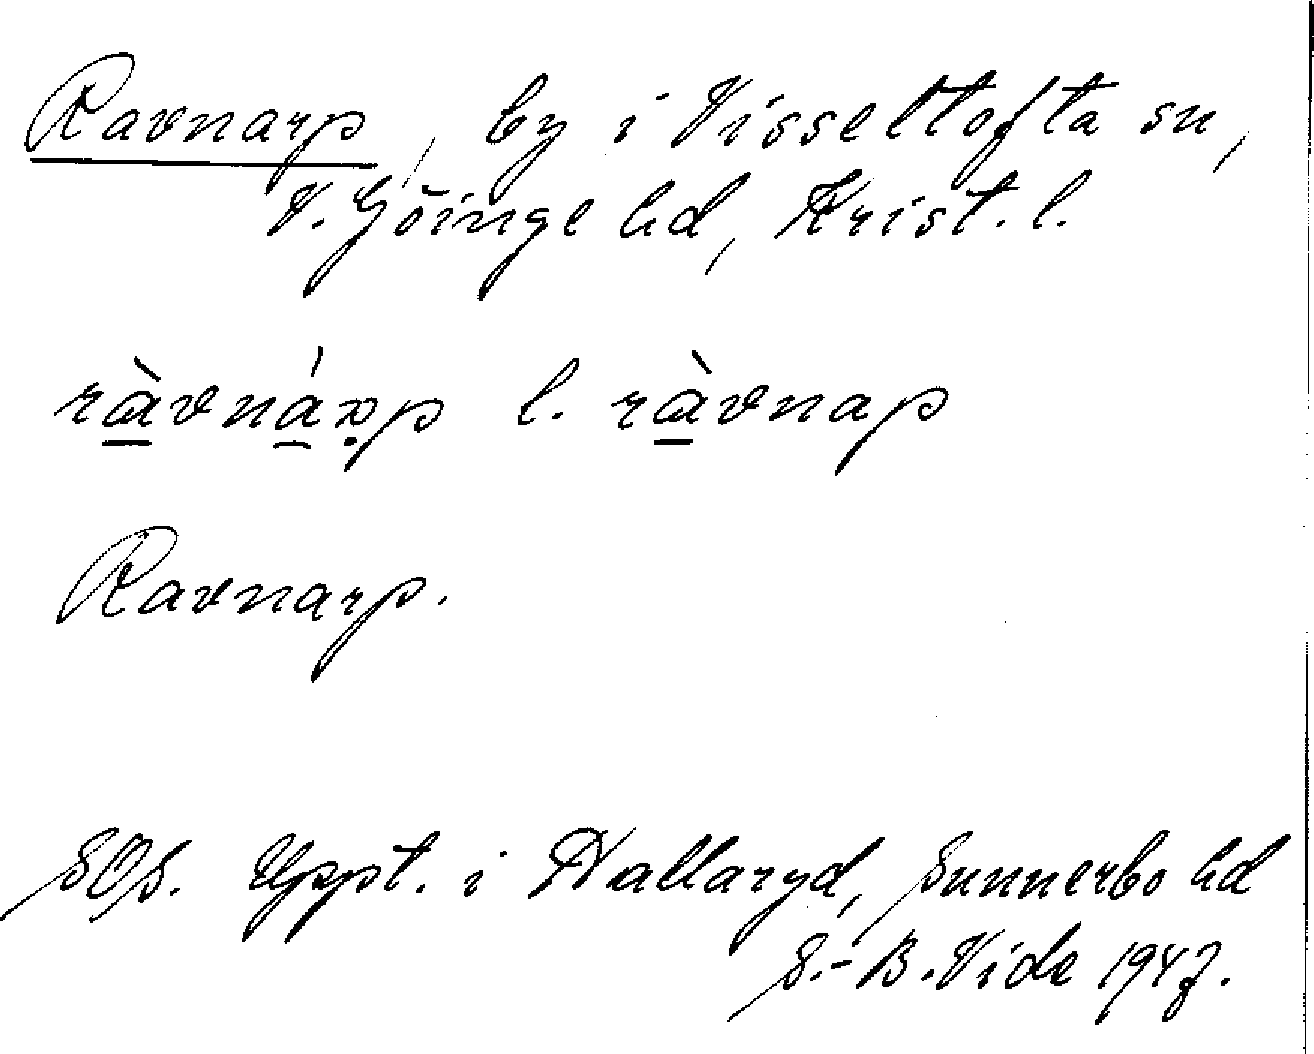 Ravnarp, by i Visseltofta sn,
V. Göinge hd, Krist. l.
ràvnáɽp l. ràvnap
Ravnarp.
SOS. Uppt. i Hallaryd, Sunnerbo hd
S.-B. Vide 1947.